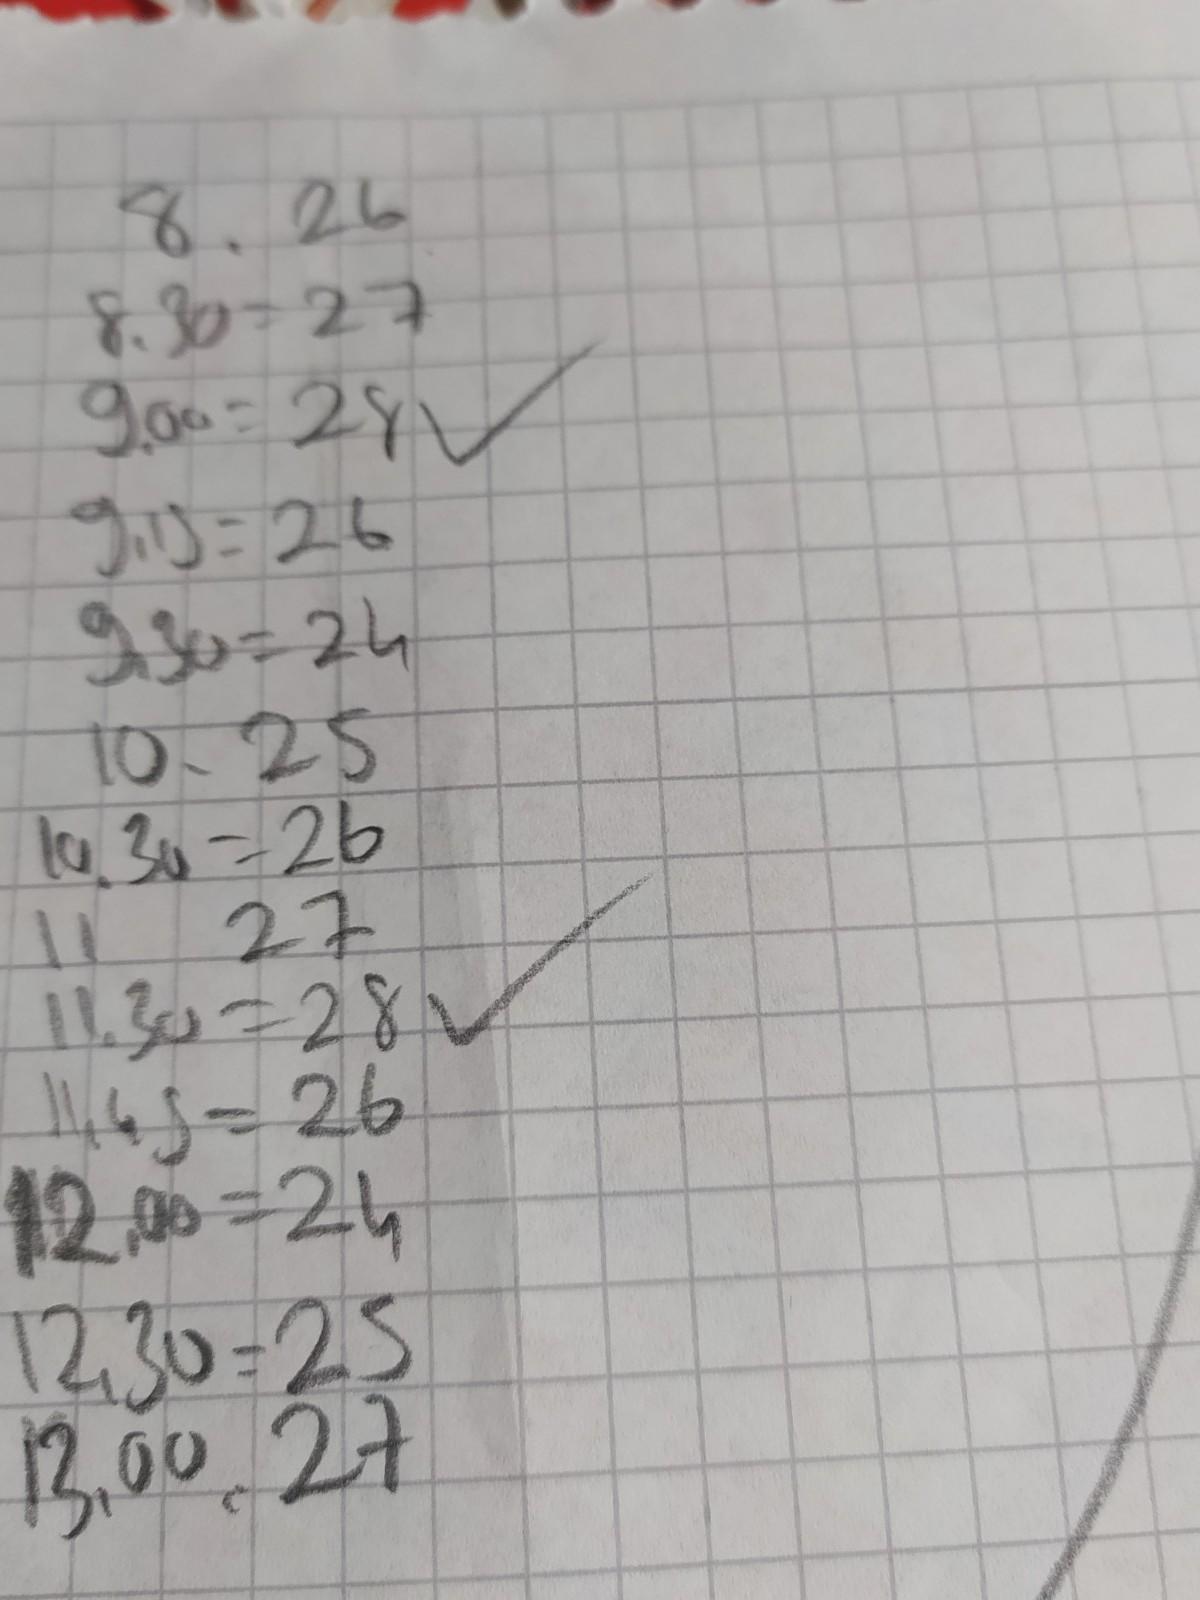 8. 26
8.30=27
9.00=28✓
9.15=26
9.30=24
10. 25
10.30=26
11 27
11.30=28✓
11.45=26
12.00=24
12.30=25
13.00. 27